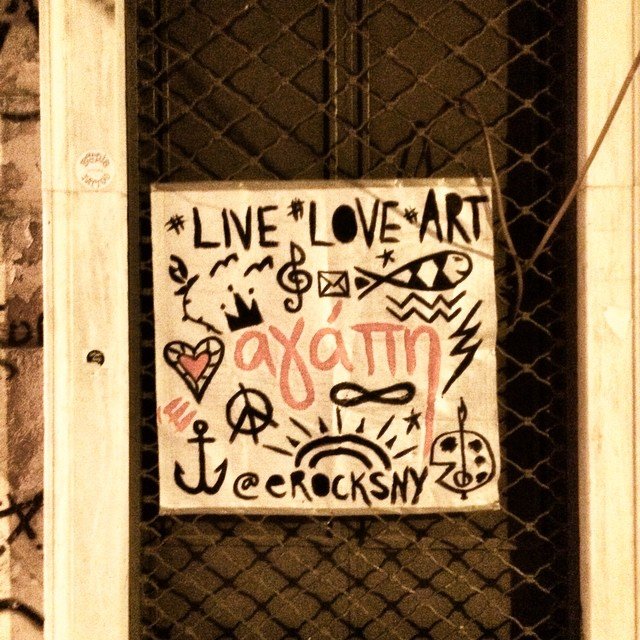 #LIVE #LOVE #ART
αγάπη
@eROCKSNY